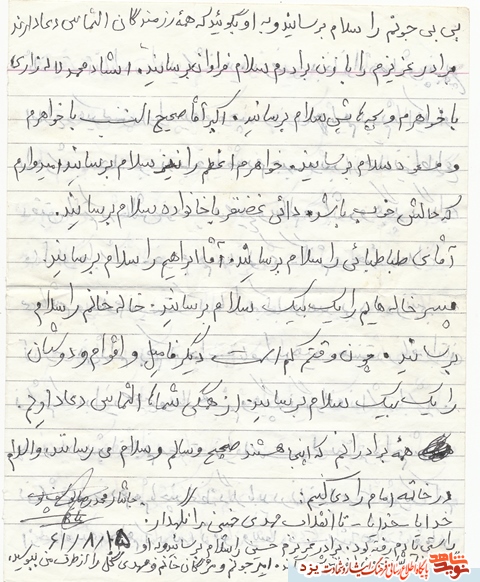 بی بی جونم را سلام برسانید و به او بگوئید که همهٔ رزمندگان التماس دعا دارند
برادر عزیزم را با زن برادرم سلام فراوان برسانید. استاد محمد
با خواهرم و بچه‌هایش سلام برسانید. اکبر آقا با خواهرم
و سلام برسانید. خواهرم اعظم را نیز سلام برسانید امیدوارم
که حالش خوب باشد. دائی غضنفر با خانواده سلام برسانید.
آقای طباطبائی را سلام برسانید. آقا ابراهیم را سلام برسانید.
پسر خاله‌هایم را یک یک سلام برسانید. خاله خانم را سلام
برسانید. چون وقتم کم است دیگر فامیل و اقوام و دوستان
را یک یک سلام برسانید. از همگی شماها التماس دعا دارم.
همهٔ برادرانم که اینجا هستند صحیح و سالم و سلام می رسانند والسلام
در خاتمه امام را دعا کنیم:
خدایا خدایا تا انقلاب مهدی خمینی را نگهدار.
راستی یادم رفته بود. برادر عزیزم حسن را سلام برسانید و به او
۶۱/۸/۱۵
پایگاه اطلاع رسانی فرهنگ ایثار و شهادت یزد
navideshahed.com